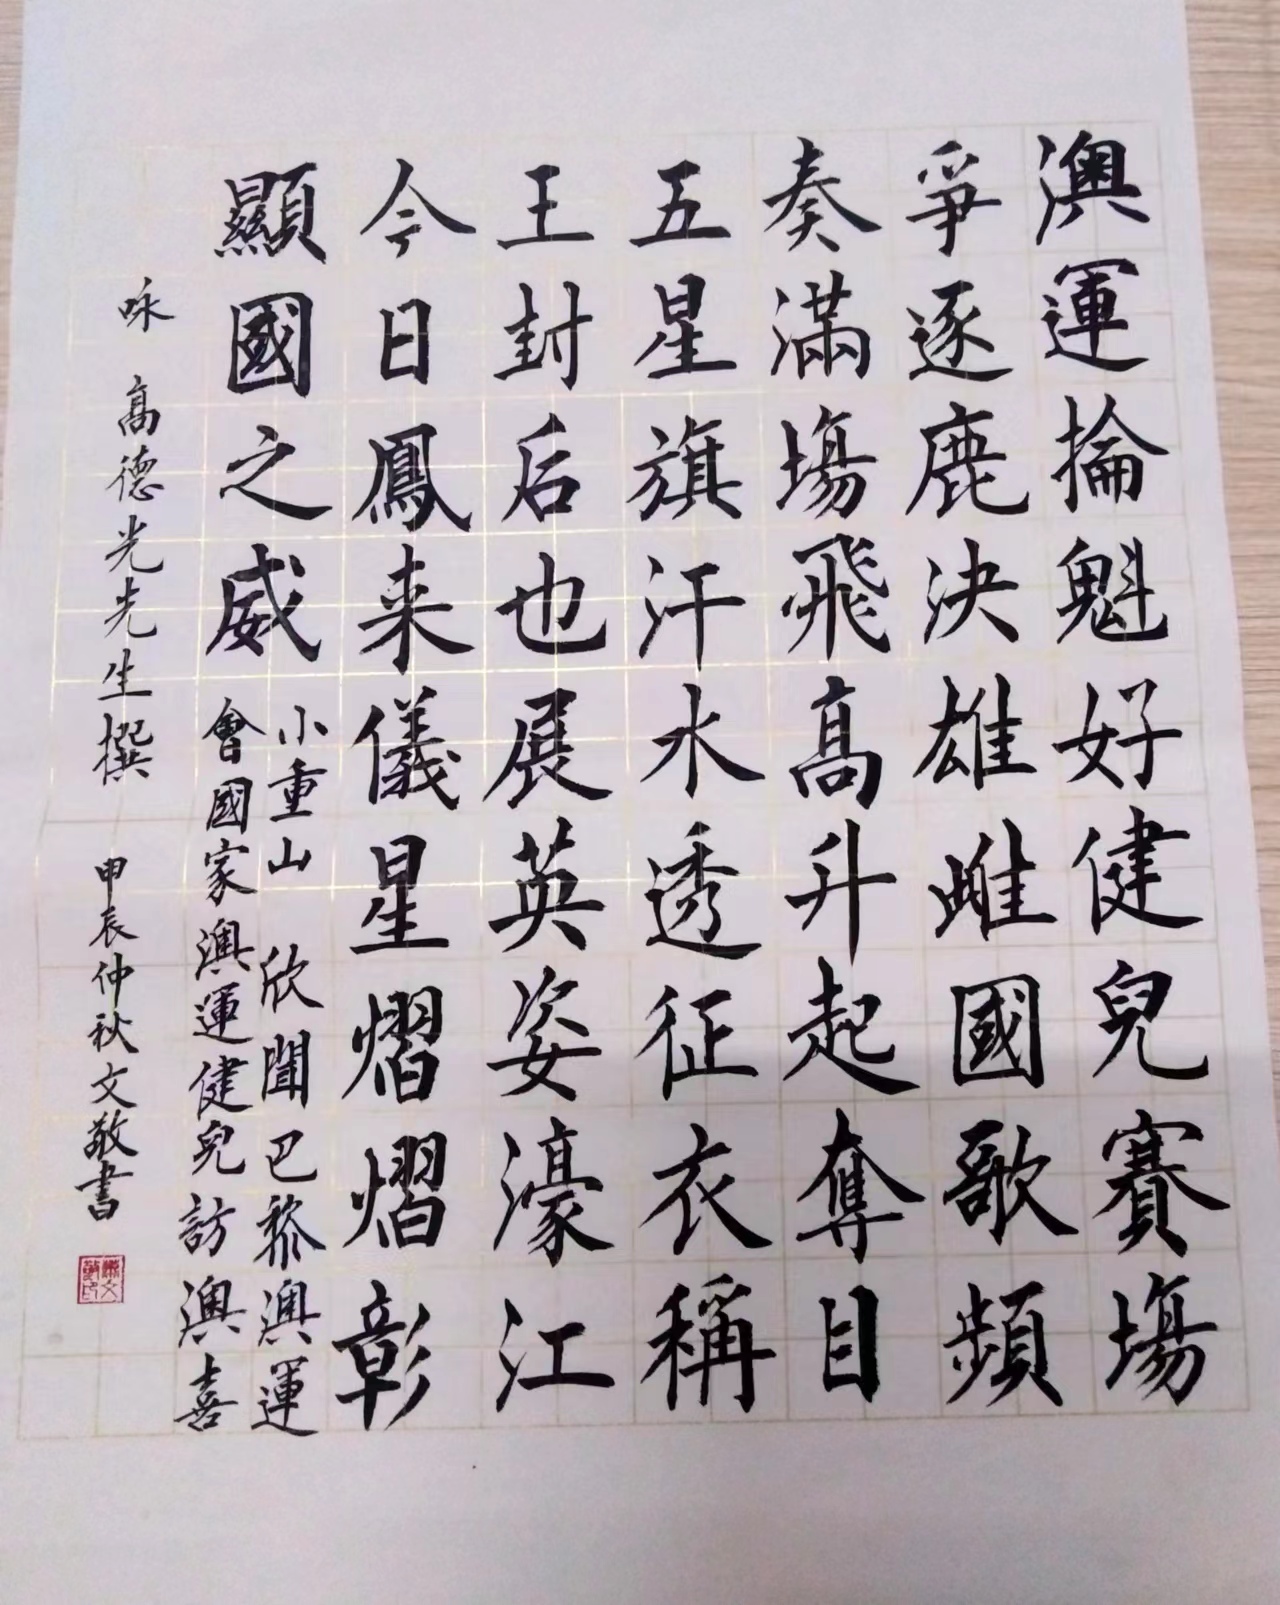 澳運掄魁好健兒賽場
爭逐鹿決雄雌國歌頻
奏滿場飛高升起奪目
五星旗汗水透征衣稱
王封后也展英姿濠江
今日鳳来儀星熠熠彰
顯國之威
小重山 欣聞巴黎澳運
會國家澳運健兒訪澳喜
咏 高德光先生撰 甲辰仲秋文敬書